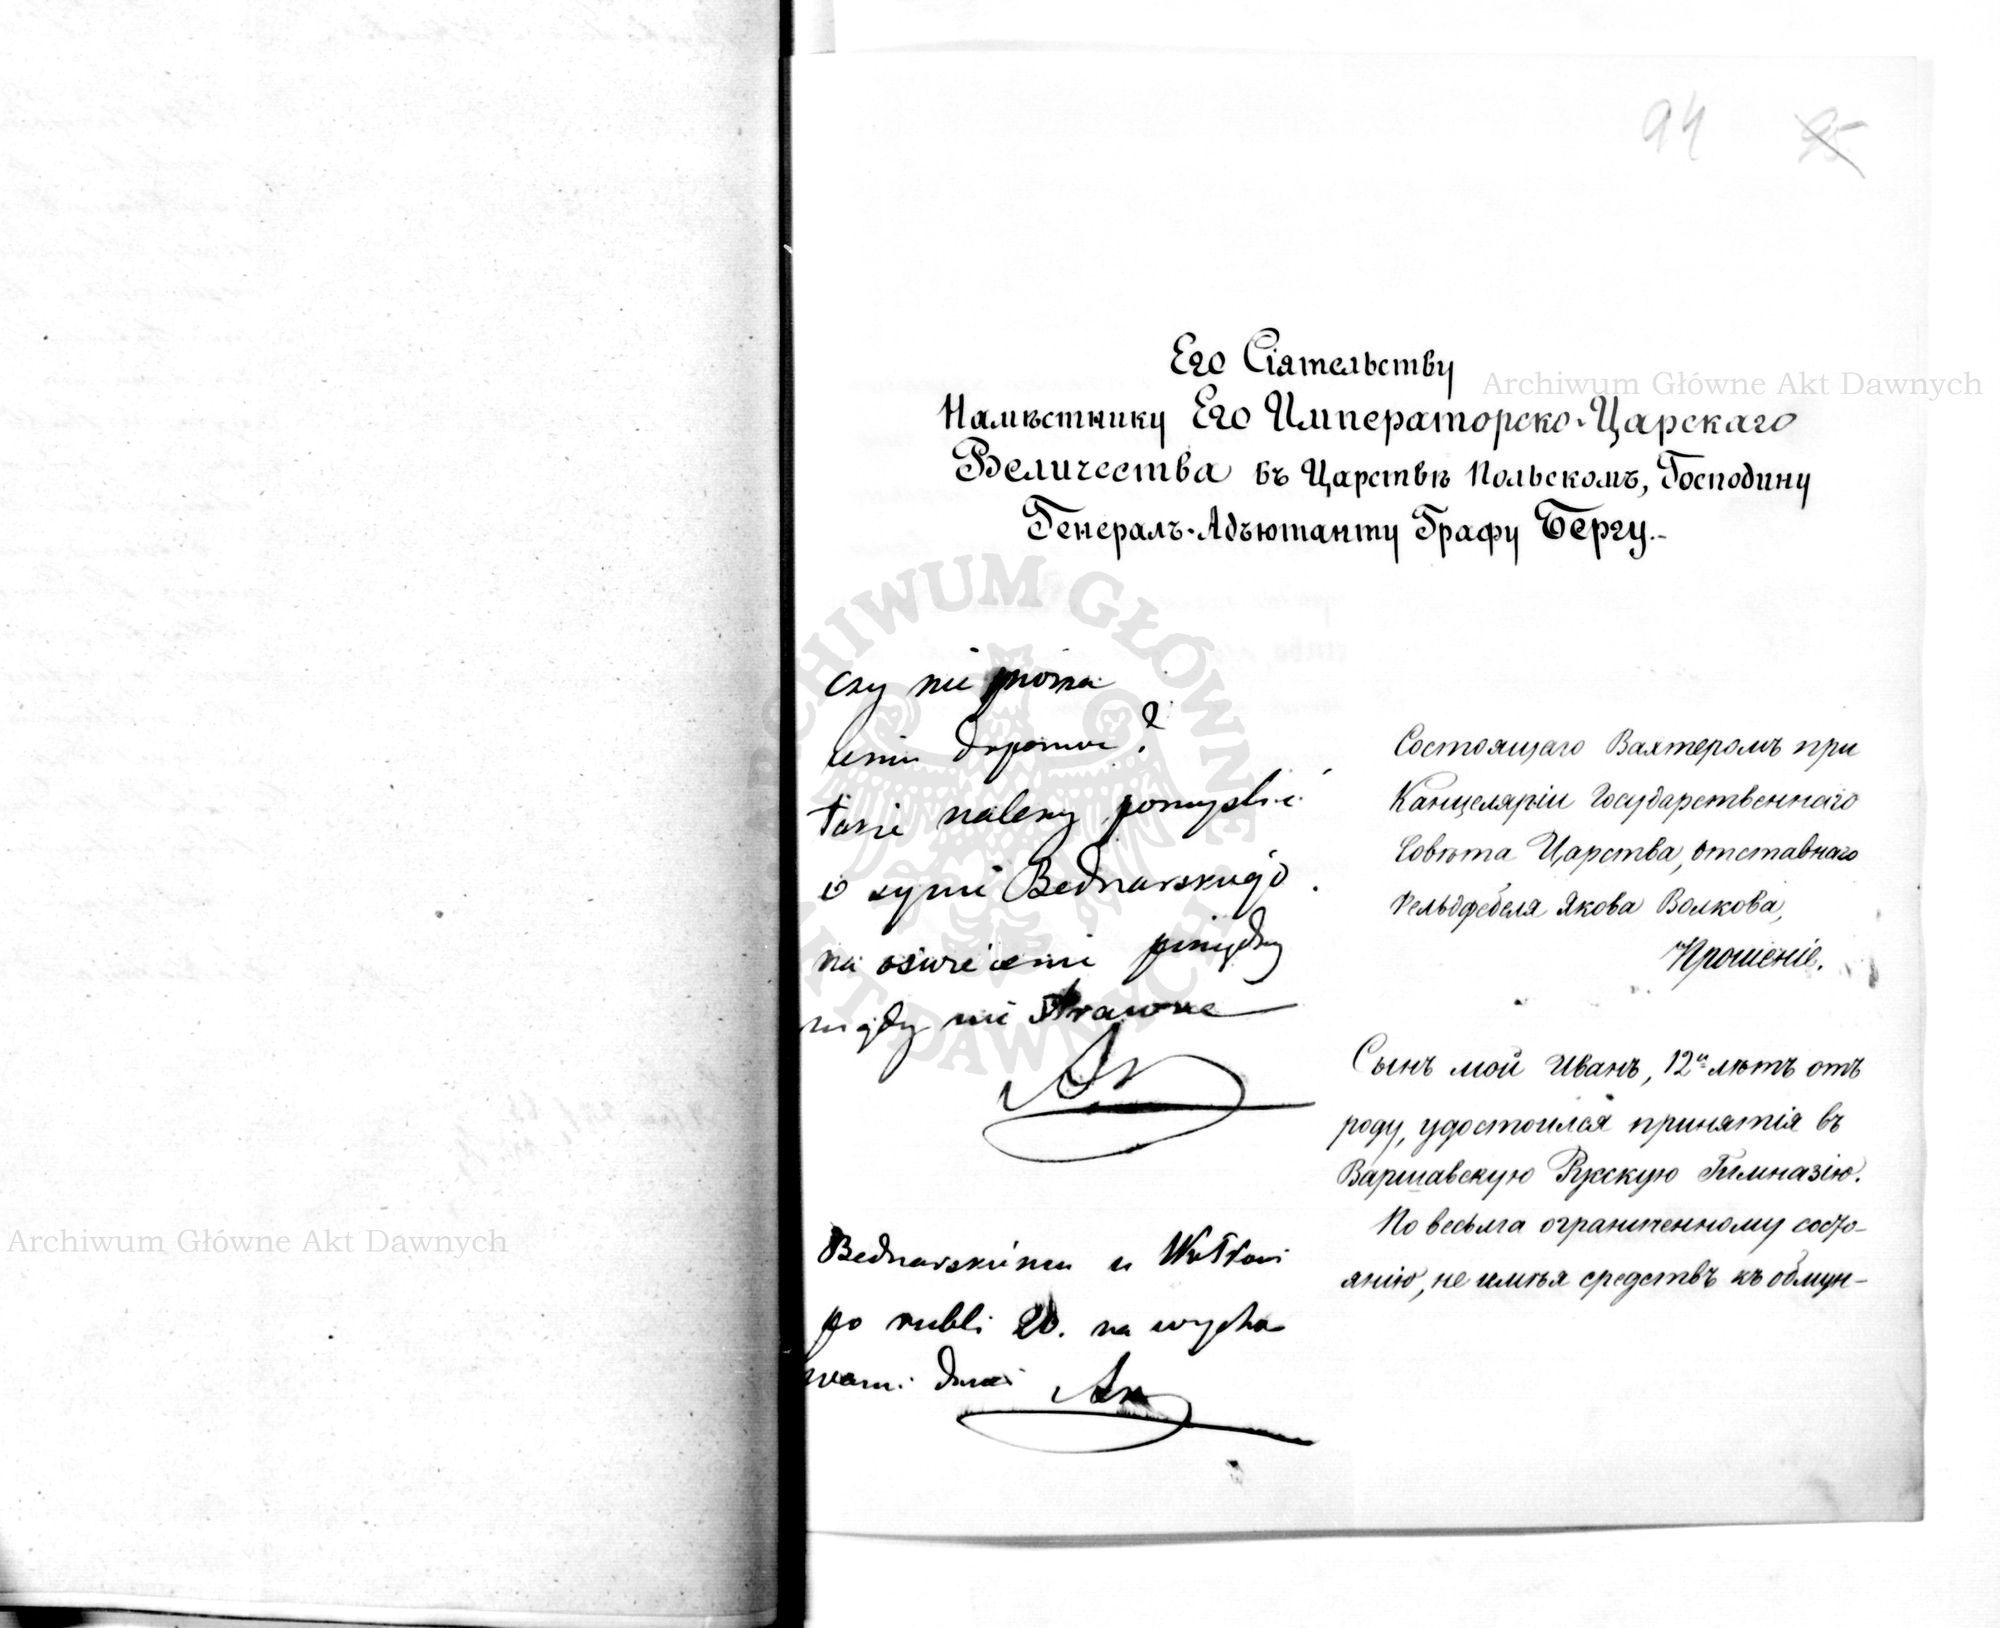 94 95
Его Сіятельству
Намѣстнику Его Императорско-Царскаго
Величества въ Царствѣ Польскомъ, Господину
Генералъ-Адъютанту Графу Бергу.
czy nie można
dopomóc?
także należy pomyślić
o synie Bednarskiego.
na oświecenie pieniędzy
nigdy nie
Bednarskiemu u
po rubli 20. na wycho
wanie
Состоящаго Вахтеромъ при
Канцеляріи Государственнаго
Совѣта Царства, отставнаго
Фельдфебеля Якова Волкова,
Прошеніе.
Сынъ мой Иванъ, 12и лѣтъ отъ
роду, удостоился принятія въ
Варшавскую Русскую Гимназію.
По весьма ограниченному состо-
янію, не имѣя средствъ къ обмун-
Archiwum Główne Akt Dawnych
Archiwum Główne Akt Dawnych
ARCHIWUM GŁÓWNE AKT DAWNYCH